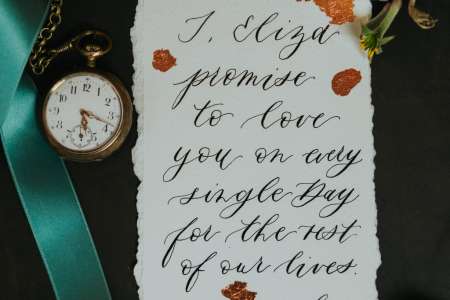 I, Eliza
promise
to love
you on every
single Day
for the rest
of our lives.